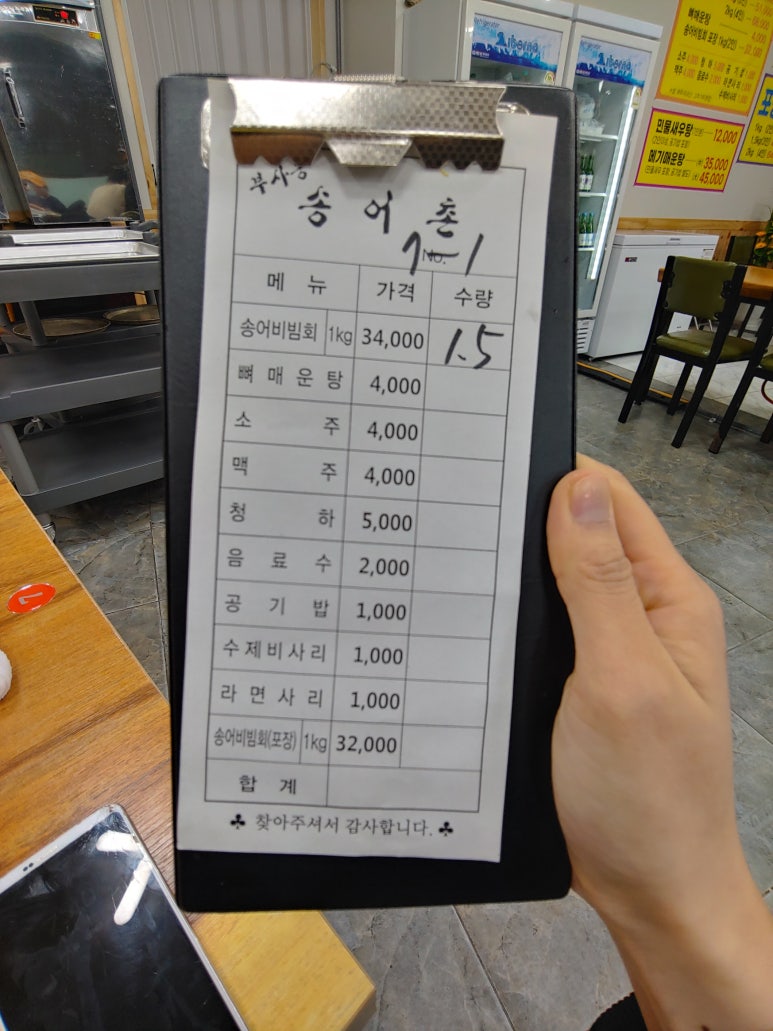 송어촌
No. 7-1
메뉴 가격 수량
송어비빔회 1kg 34,000 1.5
뼈매운탕 4,000
소주 4,000
맥주 4,000
청하 5,000
음료수 2,000
공기밥 1,000
수제비사리 1,000
라면사리 1,000
송어비빔회(포장) 1kg 32,000
합계
♣ 찾아주셔서 감사합니다. ♣
7
뼈매운탕
송어비빔회 포장 1kg(2인)
민물새우탕 12,000
메기매운탕 35,000
45,000